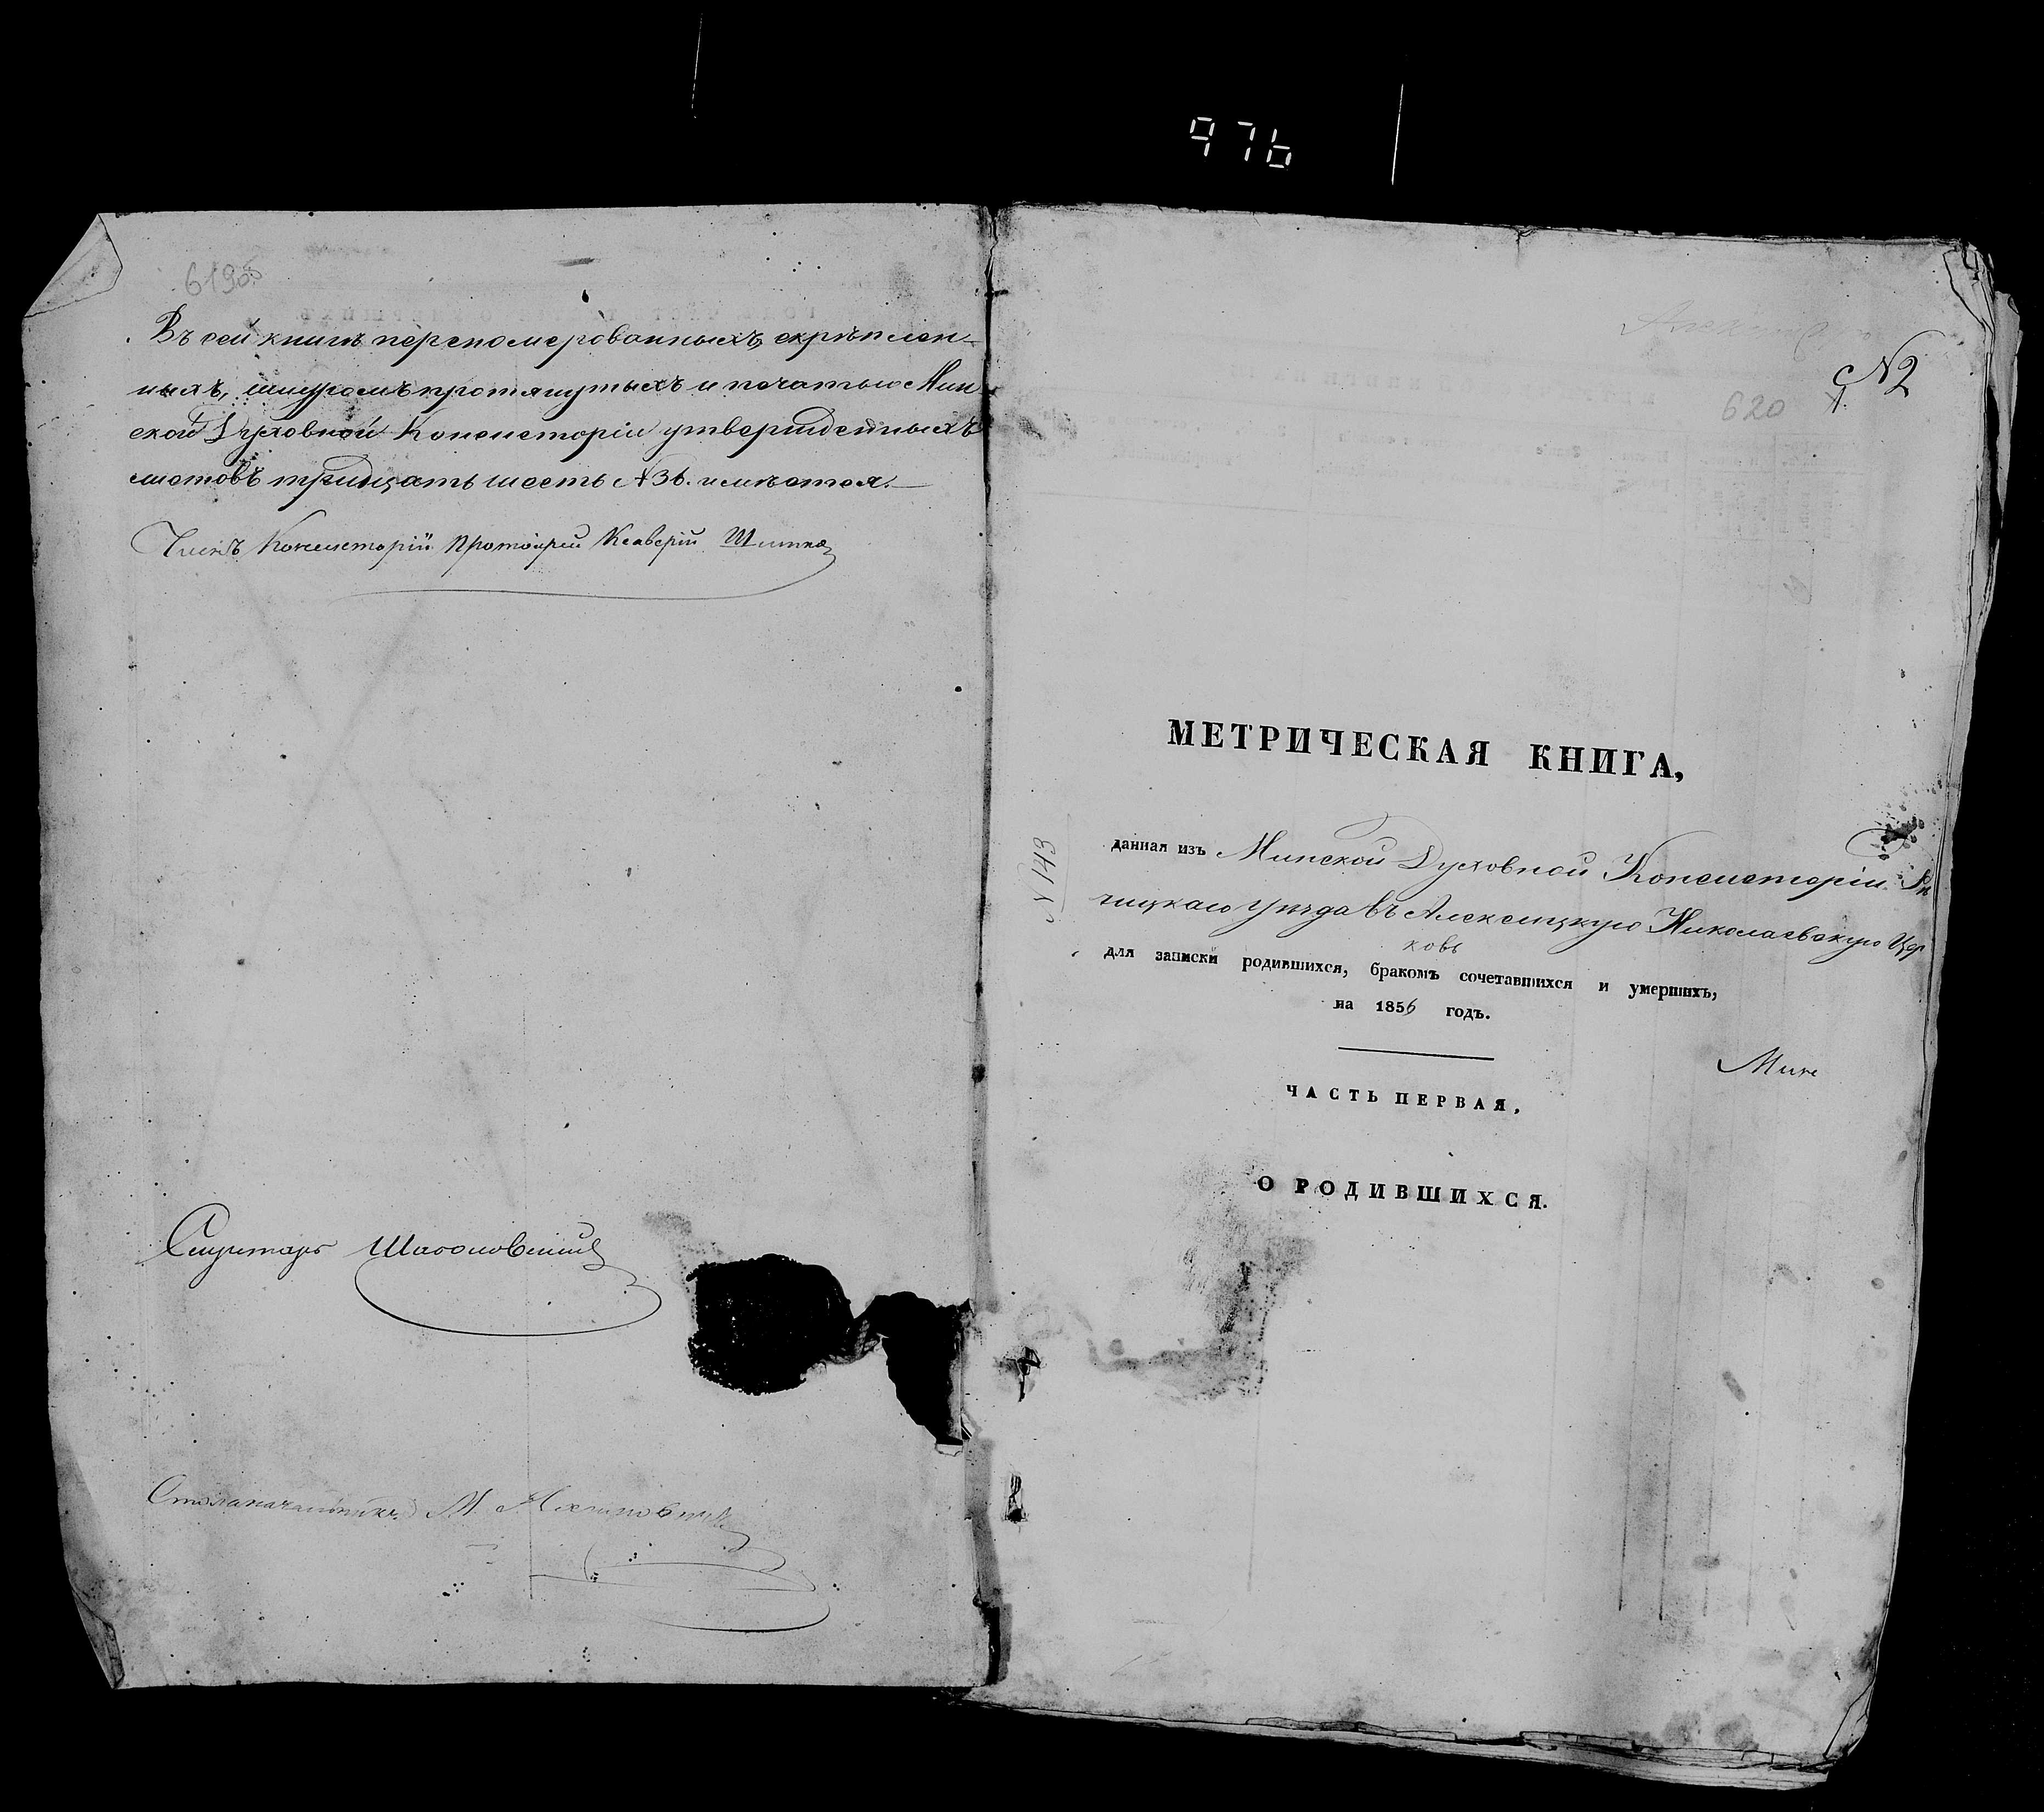 976
619об
Въ сей книгѣ перепомерованныхъ, скрѣплен-
ныхъ, шнуромъ протянутыхъ и печатью Мин-
ской Духовной Консисторіи утвержденныхъ
листовъ тридцать шесть №36. имѣется.—
Членъ Консисторіи Протоіерей Ксаверій
Секретарь
Столоначальникъ М.
№2
620
1.
МЕТРИЧЕСКАЯ КНИГА,
№143
данная изъ Минской Духовной Консисторіи Рѣ
чицкаго уѣзда въ Алексицкую Николаевскую Цер
ковь
для записки родившихся, бракомъ сочетавшихся и умершихъ,
на 1856 годъ.
Мин
ЧАСТЬ ПЕРВАЯ,
О РОДИВШИХСЯ.